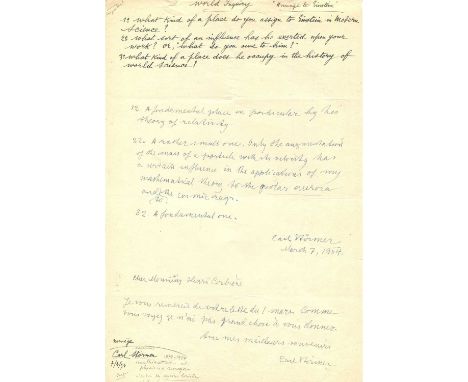 World Inquiry "Homage to Einstein"
1º what kind of a place do you assign to Einstein in Modern
Science?
2º what sort of an influence has he exerted upon your
work? or, "what do you owe to him!"
3º what kind of a place does he occupy in the history of
world Science!
1º. A fondemental place in particular by his
theory of relativity
2º. A rather small one. Only the augmentation
of the mass of a particle with its velocity has
a certain influence in the applications of my
mathematical theory to the polar aurora
and the cosmic rays.
3º. A fundamental one.
Carl Störmer
March 7, 1954
Henri Corbière
Je vous remercie de votre lettre du 1 mars. Comme
vous voyez je n'ai pas grand chose à vous donner.
Avec mes meilleurs souvenirs
Carl Störmer
Norvège
Carl Störmer